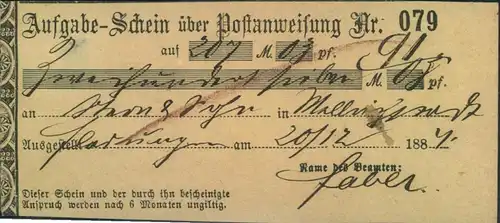 Aufgabe-Schein über Postanweisung Nr. 079
auf 207 M. 03 pf. 91
Zweihundert sieben M. 03 pf.
an Stern & Sohn in
Ausgestellt am 20/12 1884
Name des Beamten:
Faber
Dieser Schein und der durch ihn bescheinigte
Anspruch werden nach 6 Monaten ungiltig.